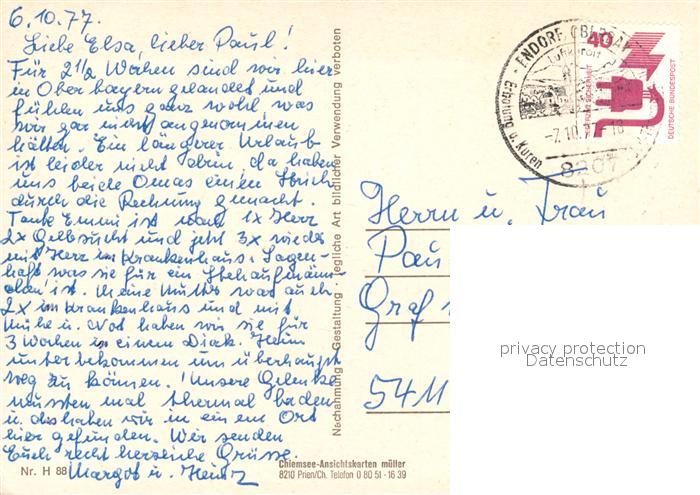 6.10.77.
Liebe Elsa, lieber Paul!
Für 2 1/2 Wochen sind wir hier
in Oberbayern gelandet und
fühlen uns ganz wohl was
wir gar nicht angenommen
hätten. Ein längerer Urlaub
ist leider nicht drin, da haben
uns beide Omas einen Strich
durch die Rechnung gemacht.
Tante Emmi ist 1x Herz
2x Gelbsucht und jetzt 3x wieder
mit Herz im Krankenhaus. Sagen-
haft was sie für ein Stehaufmänn-
chen ist. Meine Mutter war auch
2x im Krankenhaus und mit
Mühe u. Not haben wir sie für
3 Wochen in einem Diak. Heim
unterbekommen um überhaupt
weg zu können. Unsere Gelenke
mussten mal thermal baden
u. das haben wir in einem Ort
hier gefunden. Wir senden
Euch recht herzliche Grüsse.
Margot u. Heinz
Nr. H 88
Chiemsee-Ansichtskarten müller
8210 Prien/Ch. Telefon 0 80 51 - 16 39
Nachahmung · Gestaltung · jegliche Art bildlicher Verwendung verboten
ENDORF
Erholung u. Kuren
-7.10.77-18
8207
40
DEUTSCHE BUNDESPOST
Herrn u. Frau
Pau
Graf
5411
privacy protection
Datenschutz